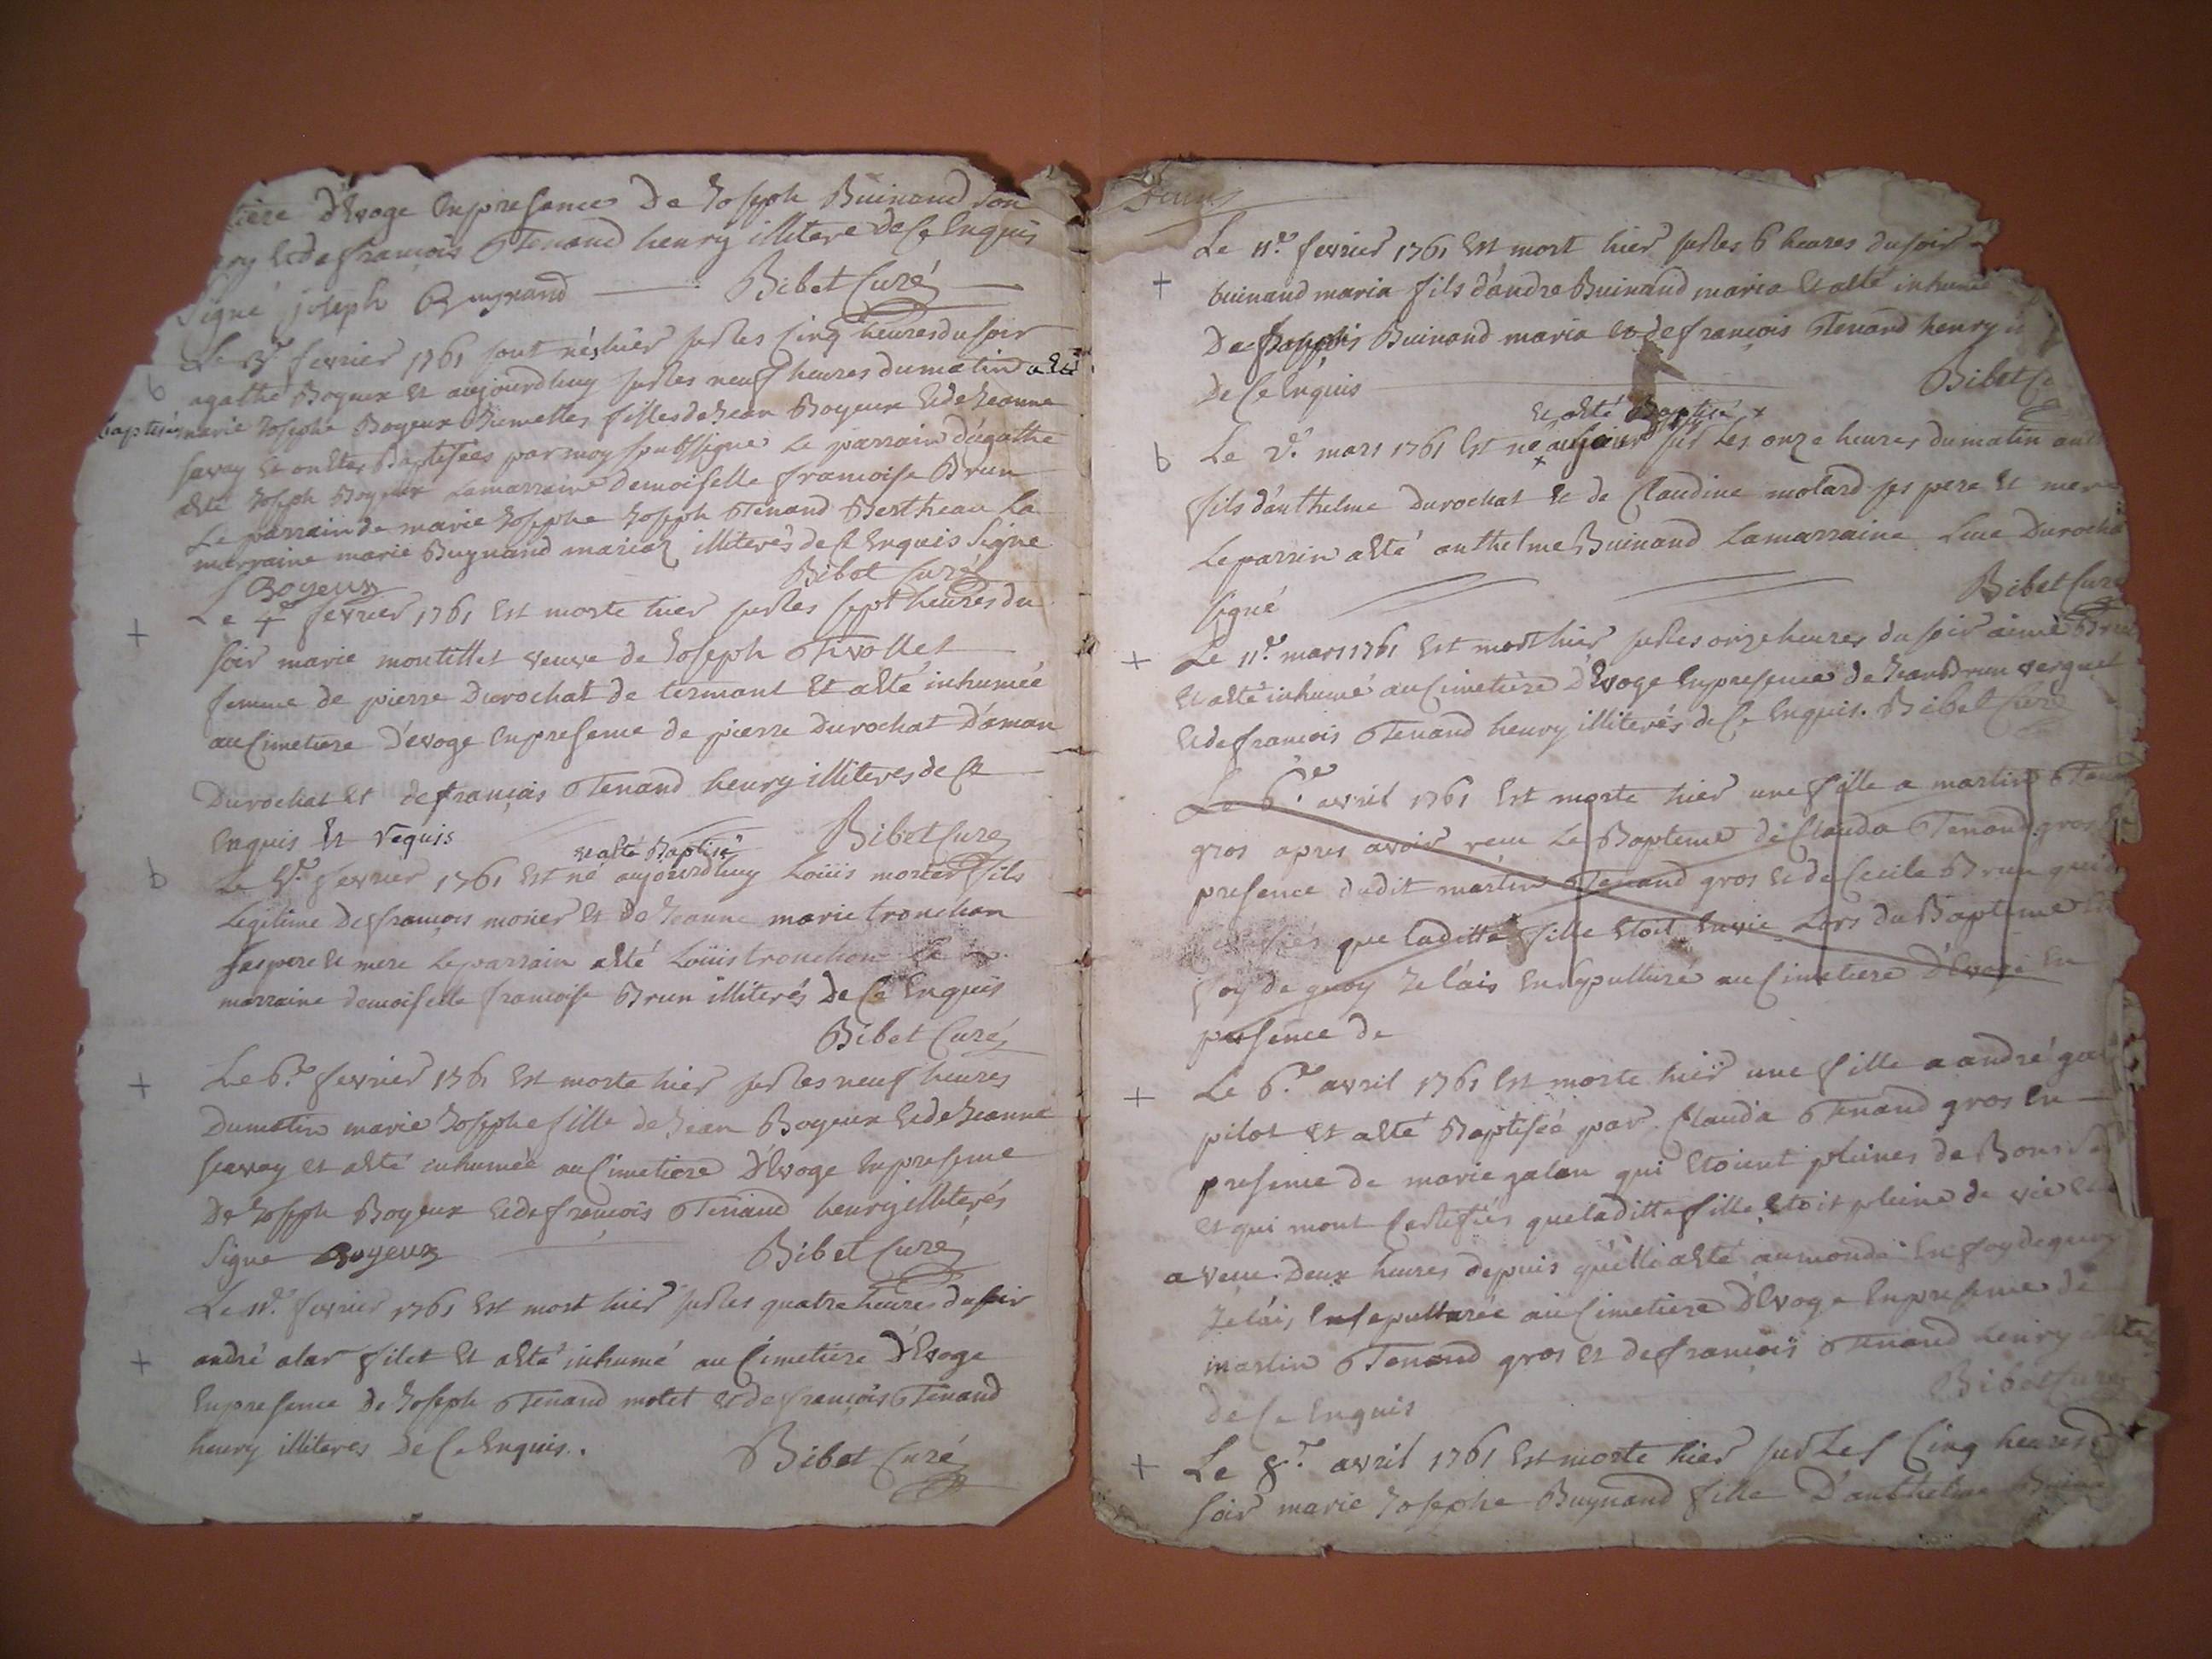 tiere d'Evoge Enpresence De Joseph Buinand son
Ecde françois Tenand henry illitere de Ce Enquis
Signé joseph Buynand Bibet Curé
Le 3e fevrier 1761 sont nés hier sur les Cinq heures du soir
agathe Boyeux et aujourdhuy sur les neuf heures dumatin a Eté
baptisée marie Josephe Boyeux Jumelles filles de Jean Boyeux Ecde Jeanne
savay Et ontEtes Baptisées par moy soubssigne Le parrain d'agathe
aEté Joseph Boyeux Lamarraine Demoiselle francoise Brun
Le parrain de marie Josephe Joseph Tenand Bertheau La
marraine marie Buynand mariaz illiterés de Ce Enquis Signe
Boyeux Bibet Curé
Le 4e fevrier 1761 Est morte hier sur les sept heures du
soir marie montillet veuve de Joseph Tivollet
femme de pierre Durochat de termant Et aEté inhumée
au Cimetiere D'evoge Enpresence de pierre Durochat D'aman
Durochat Et de françois Tenand henry illiteres de Ce
Enquis Et requis Bibet Curé
et aEté Baptisé
Le 5e fevrier 1761 Est né aujourdhuy Loüis morier fils
Legitime De françois morier Et De Jeanne marie tronchon
ses pere Et mere Le parrain aEté Loüis tronchon La
marraine demoiselle francoise Brun illiterés De Ce Enquis
Bibet Curé
Le 6e fevrier 1761 Est morte hier sur les neuf heures
Dumatin marie Josephe fille de Jean Boyeux Ecde Jeanne
savay et aEté inhumée au Cimetiere D'Evoge Enpresence
De Joseph Boyeux Ecde françois Tenand henry illiterés
Signe Boyeux Bibet Curé
Le 11e fevrier 1761 Est mort hier sur les quatre heures du soir
andré alar filet Et aEté inhumé au Cimetiere D'Evoge
Enpresence De Joseph Tenand motet Ecde françois Tenand
henry illiteres De Ce Enquis. Bibet Curé
Le 11e fevrier 1761 Est mort hier sur les 6 heures du soir
buinand maria fils d'andre Buinand maria Et aEté inhumé
De Joseph Buinand maria et de françois Tenand henry
De Ce Enquis Bibet
et aEté Baptisé
Le 2e mars 1761 Est né aujour sur Les onze heures du matin
fils d'anthelme Durochat Et de Claudine molard ses pere Et mere
Le parrin aEté anthelme Buinand Lamarraine
signé Bibet Curé
Le 11e mars 1761 Est mort hier sur les onze heures du soir aimé Brun
Et aEté inhumé au Cimetiere D'Evoge Enpresence de Jean Brun verguet
Ecde françois Tenand henry illiterés de Ce Enquis. Bibet Curé
Le 6e avril 1761 Est morte hier une fille a martin
gros apres avoir reçu Le Bapteme de Clauda Tenand gros
presence dudit martin Tenand gros Ecde Cecile Brun qui
que laditte fille Etoit Envie Lors du Bapteme
foy de quoy Je l'ais Ensepulturé au Cimetiere D'Evoge En
presence de
Le 6e avril 1761 Est morte hier une fille a andré
pilot Et aEté Baptiséé par Clauda Tenand gros En
presence de marie galan qui Etoient pleines de Bons
et qui mont Certifiés que laditte fille Etoit pleine de vie
a veçu Deux heures depuis qu'elle aEté au monde En foy de quoy
Je l'ais Ensepulturée au Cimetiere D'Evoge Enpresence de
martin Tenand gros Et de françois Tenand henry
de Ce Enquis Bibet Curé
Le 8e avril 1761 Est morte hier sur Les Cinq heures
soir marie Josephe Buynand fille D'anthelme